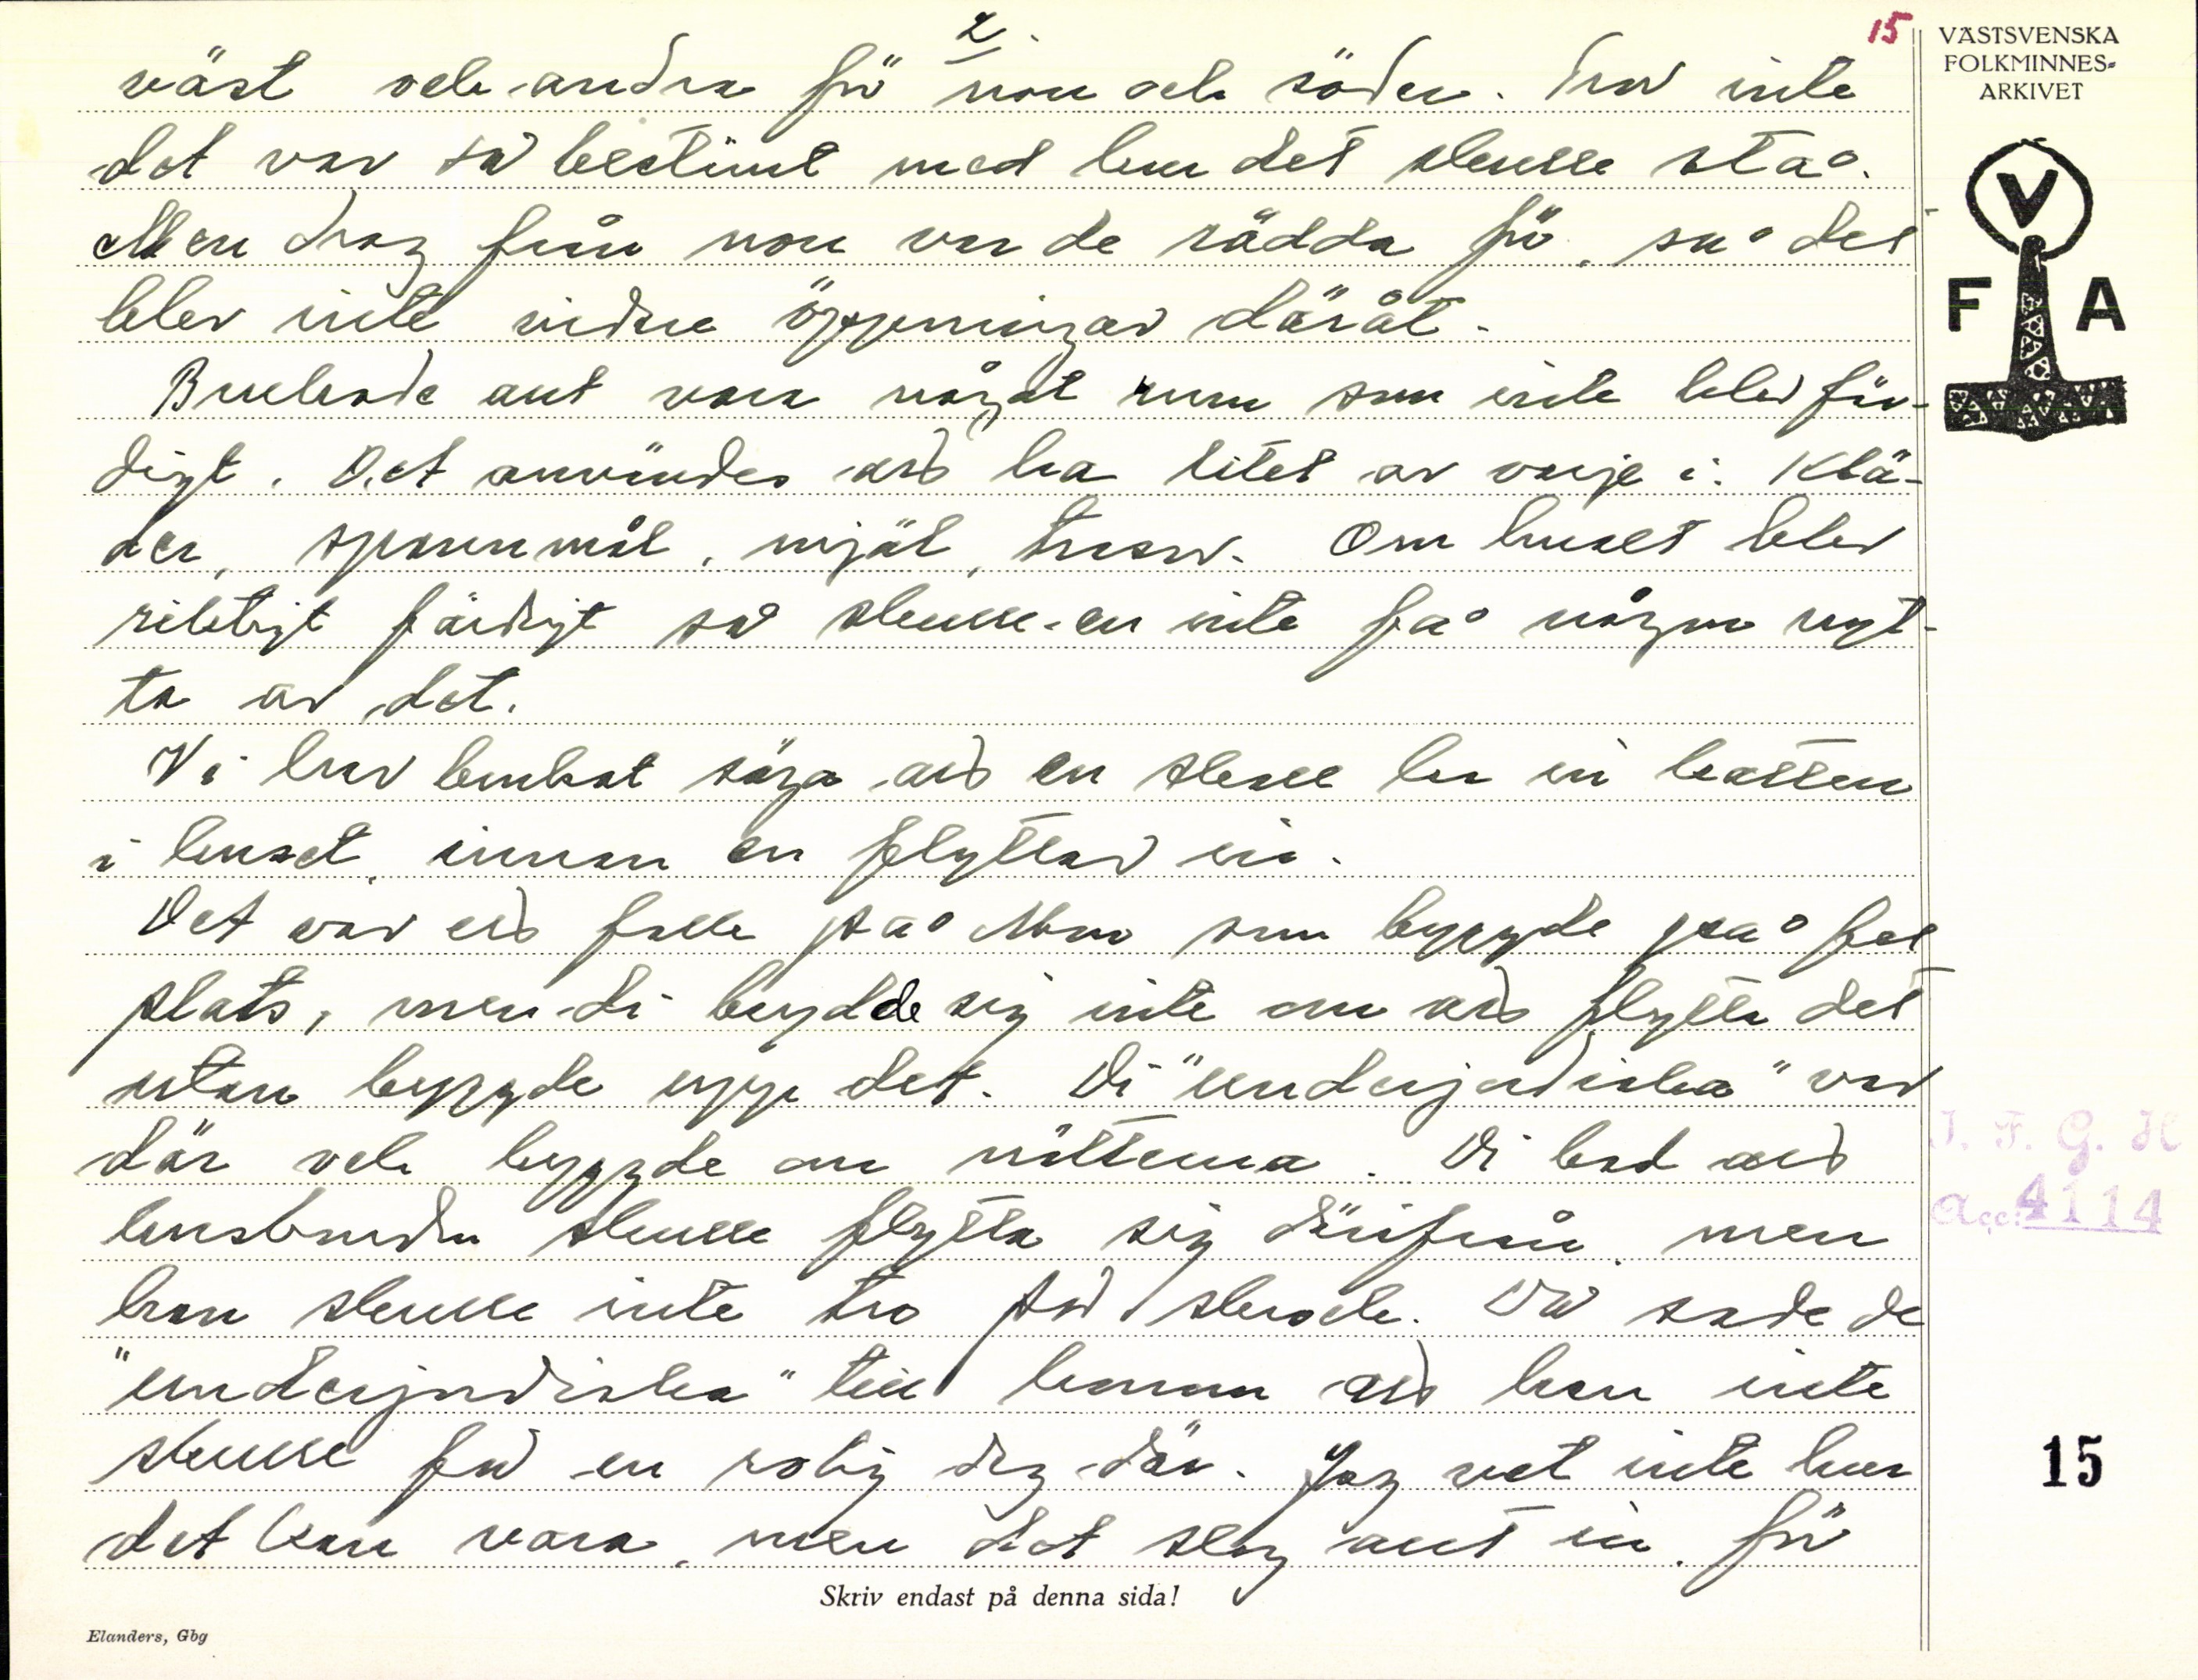 2.
15
VÄSTSVENSKA
FOLKMINNES-
ARKIVET
väst och andra för norr och söder. Men inte
det var så bestämt med hur det skulle stå.
Men drag från norr var de rädda för, så det
blev inte vidare öppningar däråt.
Brukade allt vara något rum som inte blev fär-
digt. Det användes att ha litet av varje i. Klä-
der, spannmål, mjöl, trasor. Om huset blev
riktigt färdigt så skulle en inte få någon nyt-
ta av det.
Vi har brukat säga att en skall ha in katten
i huset, innan en flyttar in.
Det var ett folk på Mon som byggde på fel
plats, men di brydde sig inte om att flytta det
utan byggde upp det. Di "underjordiska" var
där och byggde om nätterna. Di bad att
husbonden skulle flytta sig därifrån, men
han skulle inte tro på skrock. Då sade de
"underjordiska" till honom att han inte
skulle få en rolig dag där. Jag vet inte hur
det kan vara, men det slog allt in. För
V
F A
I. F. G. H
Acc. 4114
15
Skriv endast på denna sida!
Elanders, Gbg